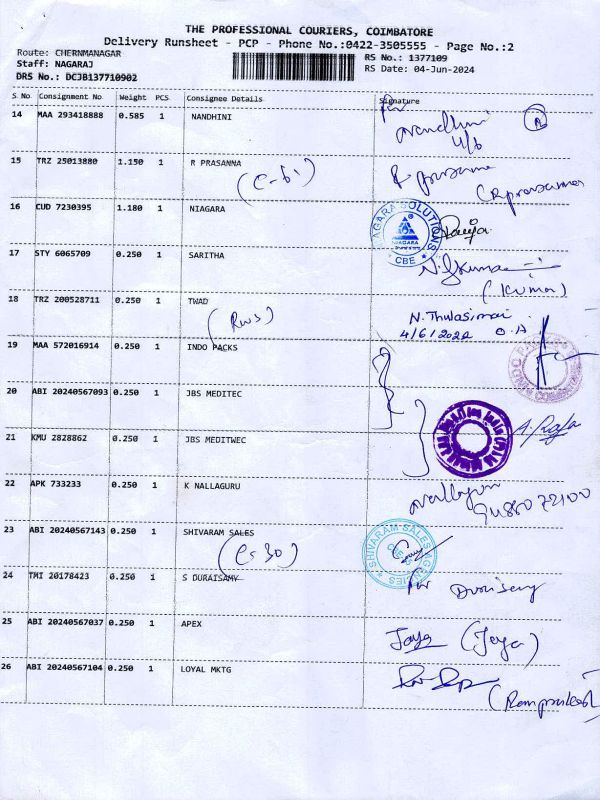 THE PROFESSIONAL COURIERS, COIMBATORE
Delivery Runsheet - PCP - Phone No.:0422-3505555 - Page No.:2
Route: CHERNMANAGAR RS No.: 1377109
Staff: NAGARAJ RS Date: 04-Jun-2024
DRS No.: DCJB137710902
S No Consignment No Weight PCS Consignee Details Signature
14 MAA 293418888 0.585 1 NANDHINI Nandhini
4/6
15 TRZ 25013880 1.150 1 R PRASANNA R Prasanna
(C-61) (R Prasanna
16 CUD 7230395 1.180 1 NIAGARA NIAGARA SOLUTIONS NIAGARA CBE
17 STY 6065709 0.250 1 SARITHA
(Kumar)
18 TRZ 200528711 0.250 1 TWAD N. Thulasimai
(RWS) 4/6/2022 O.A
19 MAA 572016914 0.250 1 INDO PACKS
20 ABI 20240567093 0.250 1 JBS MEDITEC
21 KMU 2828862 0.250 1 JBS MEDITWEC A. Raja
22 APK 733233 0.250 1 K NALLAGURU
23 ABI 20240567143 0.250 1 SHIVARAM SALES SHIVARAM SALES AGENCIES
(C-30)
24 TMI 20178423 0.250 1 S DURAISAMY Duraisamy
25 ABI 20240567037 0.250 1 APEX Jaya (Jeya)
26 ABI 20240567104 0.250 1 LOYAL MKTG
(Ramprakash)